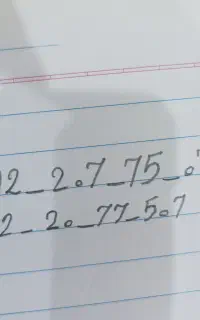 2_2.7_75_.
2_2._77_5.7